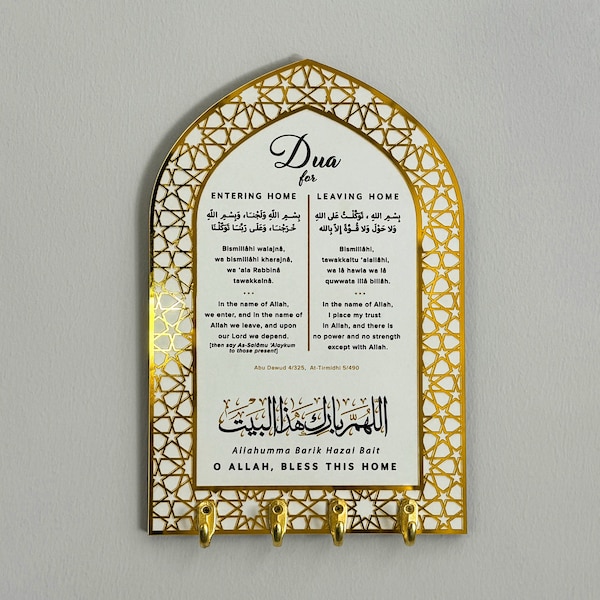 Dua
for
ENTERING HOME
بِسْمِ اللَّهِ وَلَجْنَا، وَبِسْمِ اللَّهِ
خَرَجْنَا، وَعَلَى رَبِّنَا تَوَكَّلْنَا
Bismillâhi walajnâ,
wa bismillâhi kherajnâ,
wa 'ala Rabbinâ
tawakkalnâ.
•••
In the name of Allah,
we enter, and in the name of
Allah we leave, and upon
our Lord we depend.
[then say As-Salâmu 'Alaykum
to those present]
LEAVING HOME
بِسْمِ اللَّهِ ، تَوَكَّلْتُ عَلَى اللَّهِ
وَلَا حَوْلَ وَلَا قُوَّةَ إِلَّا بِاللَّهِ
Bismillâhi,
tawakkaltu 'alallâhi,
wa lâ hawla wa lâ
quwwata illâ billâh.
•••
In the name of Allah,
I place my trust
in Allah, and there is
no power and no strength
except with Allah.
Abu Dawud 4/325, At-Tirmidhi 5/490
اللَّهُمَّ بَارِكْ هَذَا الْبَيْتَ
Allahumma Barik Hazal Bait
O ALLAH, BLESS THIS HOME